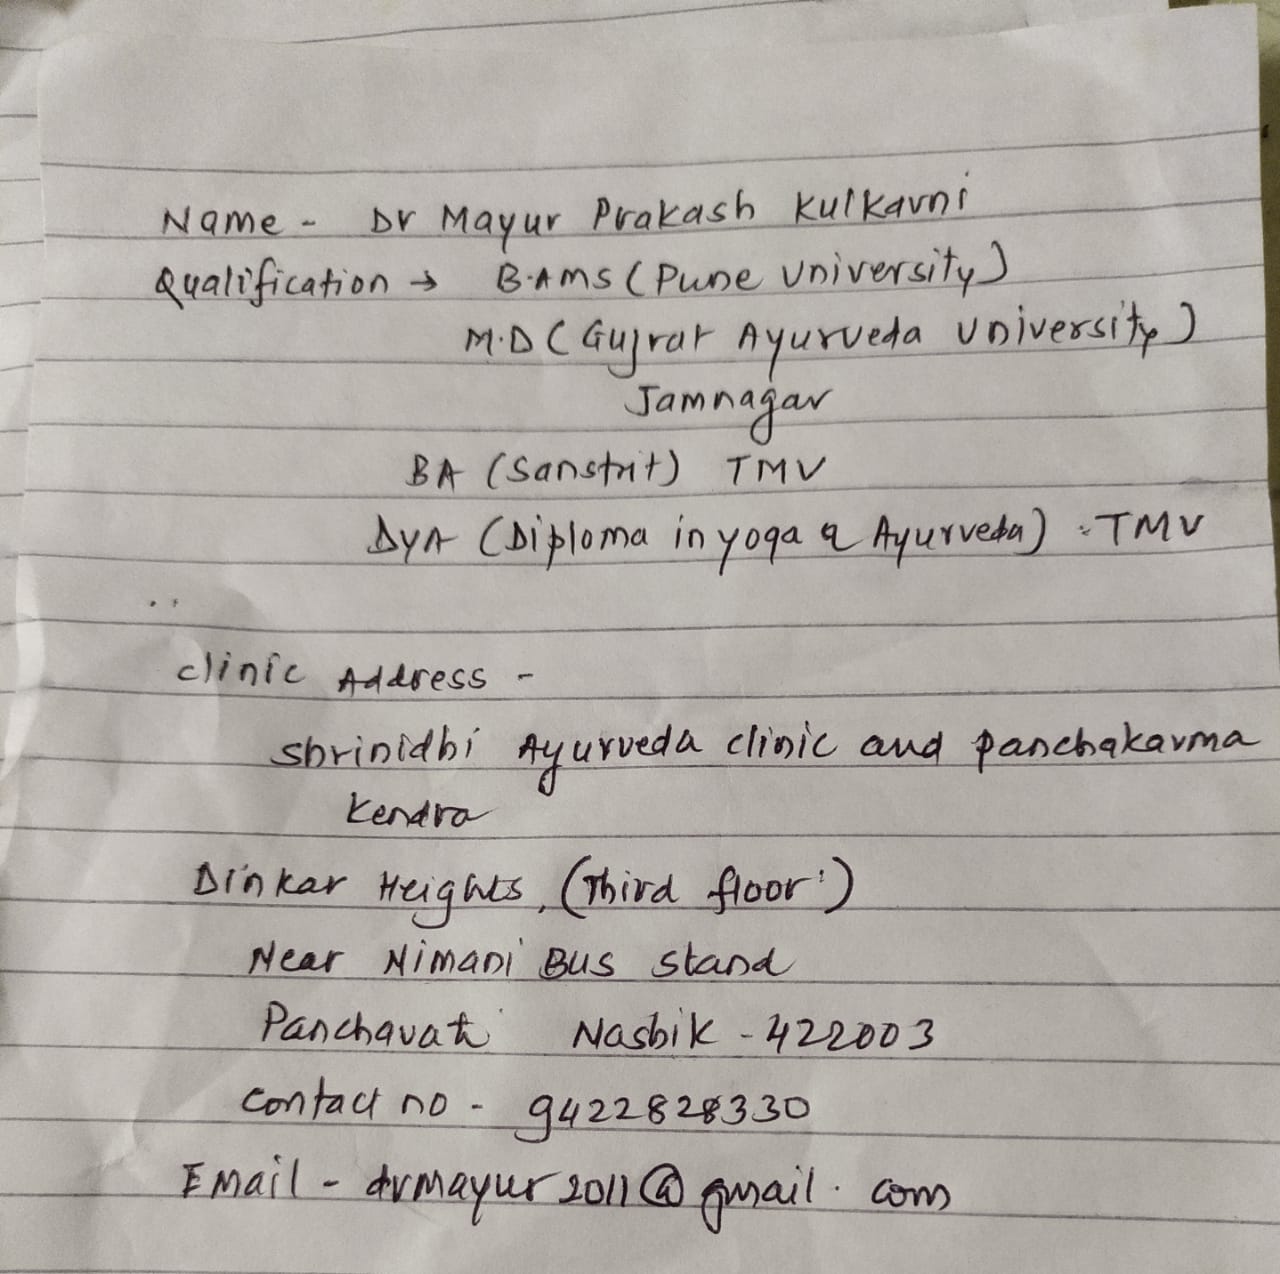 Name - Dr Mayur Prakash Kulkarni
Qualification → B.AMS (Pune University)
M.D (Gujrat Ayurveda University)
Jamnagar
BA (Sanskrit) TMV
DYA (Diploma in yoga & Ayurveda) - TMV
clinic Address -
Shrinidhi Ayurveda clinic and panchakarma
Kendra
Dinkar Heights, (Third floor)
Near Nimani Bus stand
Panchavati Nashik - 422003
contact no - 9422828330
Email - drmayur2011@gmail.com